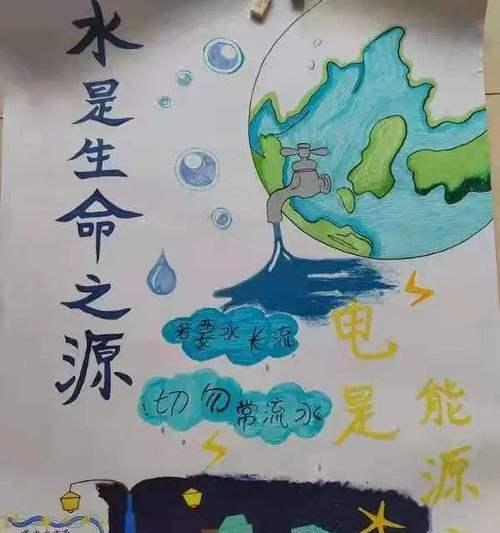 水是生命之源
若要水长流
切勿常流水
电是
能源